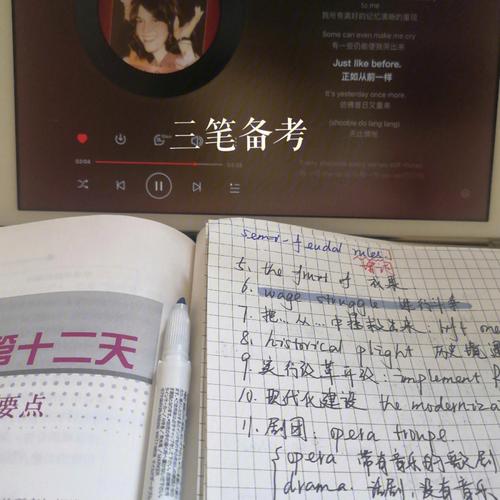 to me
我所有美好的记忆清晰的重现
Some can even make me cry
有一些仍能使我哭出来
Just like before.
正如从前一样
It's yesterday once more.
仿佛昔日又重来
(shoobie do lang lang)
无比惆怅
三笔备考
02:04
第十二天
要点
semi-feudal rules.
5. the fruit of 成果
6. wage struggle 进行斗争
7. 把…从…中拯救出来: lift one
8. historical plight 历史
9. 实行改革开放: implement
10. 现代化建设 the moderniza
11. 剧团: opera troupe.
opera 带有音乐的歌剧
drama 话剧 没有音乐